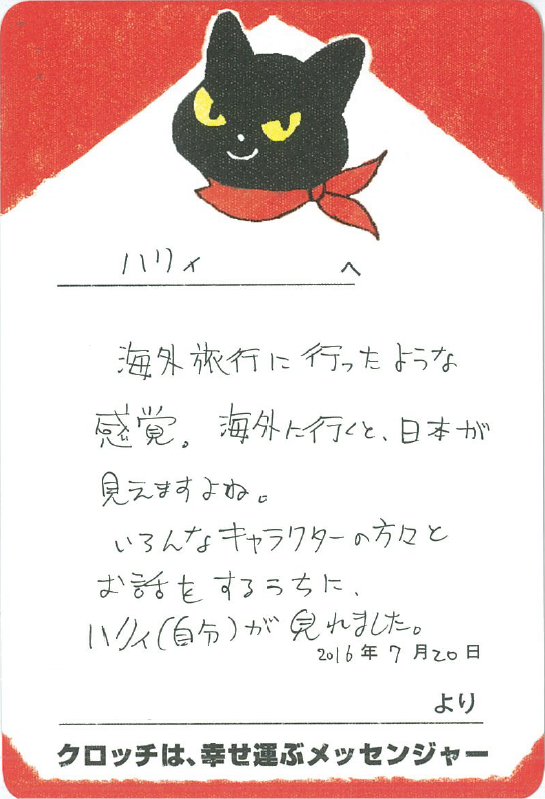 ハリィ へ
海外旅行に行ったような
感覚。海外に行くと、日本が
見えますよね。
いろんなキャラクターの方々と
お話をするうちに、
ハリィ(自分)が見れました。
2016年7月20日
より
クロッチは、幸せ運ぶメッセンジャー